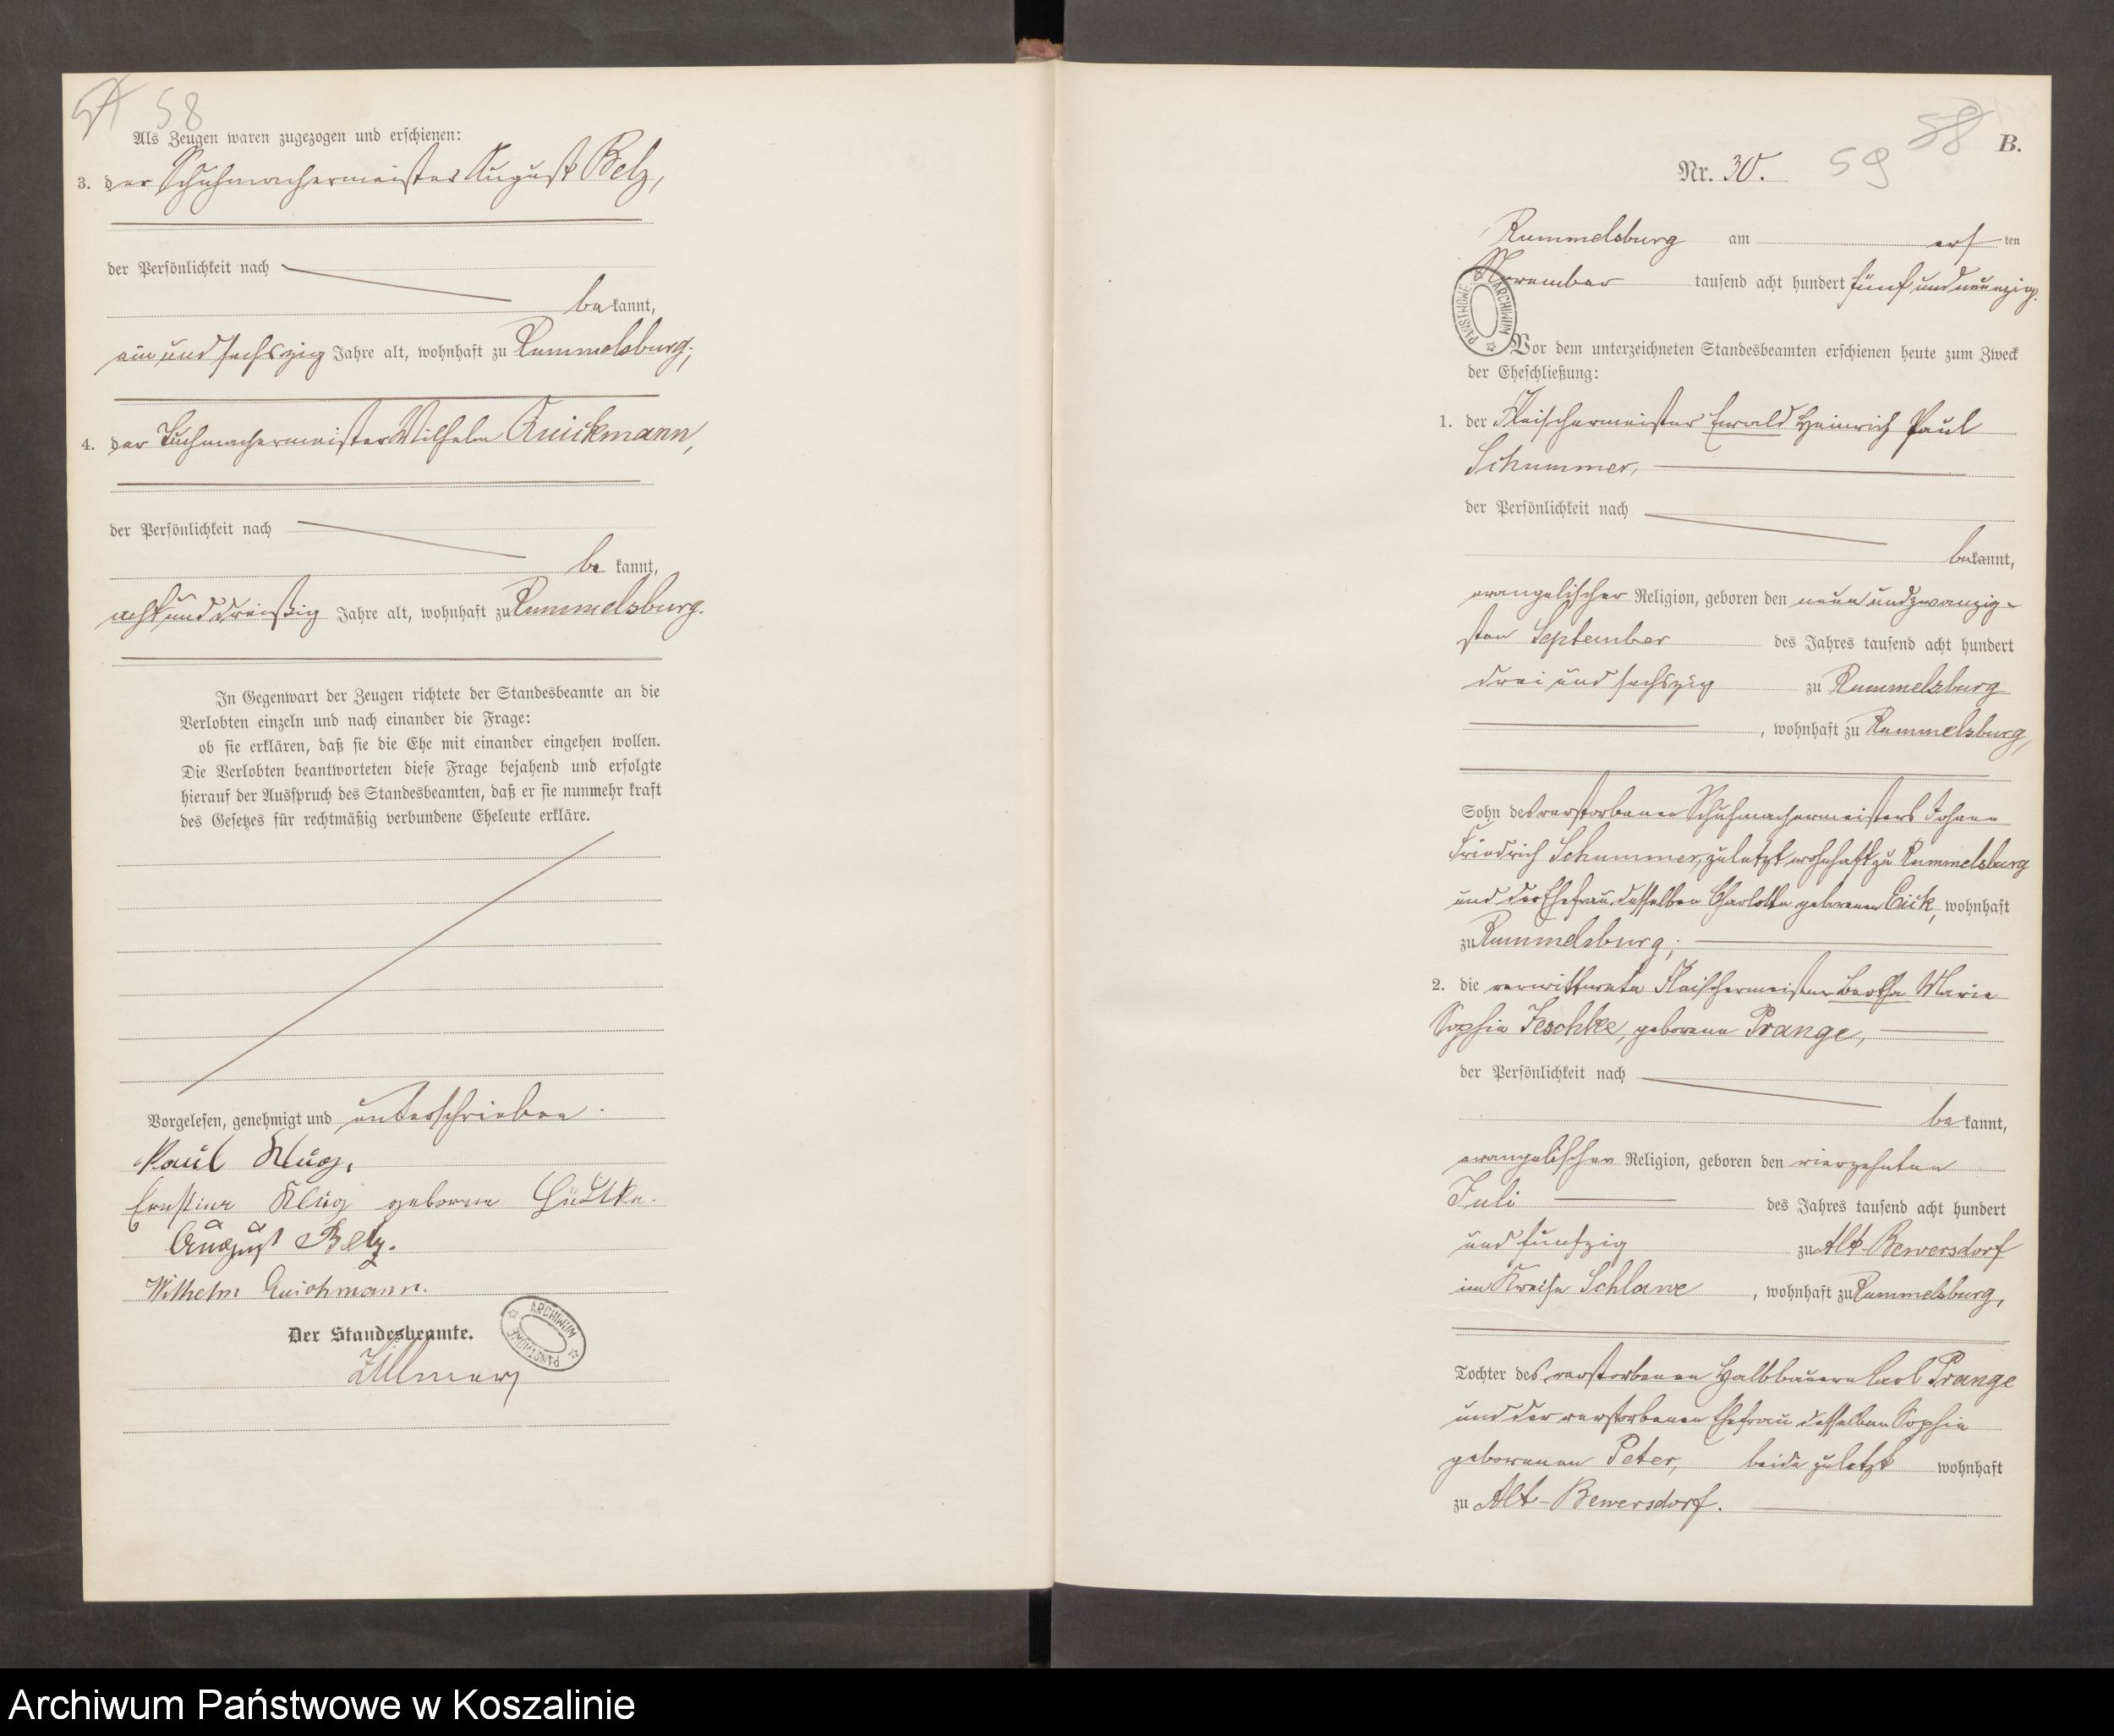 58
Als Zeugen waren zugezogen und erschienen:
3. der Schuhmachermeister August Belz,
der Persönlichkeit nach
be kannt,
ein und sechszig Jahre alt, wohnhaft zu Rummelsburg;
4. der Tuchmachermeister Wilhelm Quickmann,
der Persönlichkeit nach
be kannt,
acht und dreißig Jahre alt, wohnhaft zu Rummelsburg.
In Gegenwart der Zeugen richtete der Standesbeamte an die
Verlobten einzeln und nach einander die Frage:
ob sie erklären, daß sie die Ehe mit einander eingehen wollen.
Die Verlobten beantworteten diese Frage bejahend und erfolgte
hierauf der Ausspruch des Standesbeamten, daß er sie nunmehr kraft
des Gesetzes für rechtmäßig verbundene Eheleute erkläre.
Vorgelesen, genehmigt und unterschrieben.
Paul Klug.
Ernstine Klug geborne
August Belz.
Wilhelm Quickmann.
Der Standesbeamte.
ARCHIWUM PAŃSTWOWE
58
59
B.
Nr. 30.
Rummelsburg am ersten
November tausend acht hundert fünf und neunzig.
ARCHIWUM PAŃSTWOWE
Vor dem unterzeichneten Standesbeamten erschienen heute zum Zweck
der Eheschließung:
1. der Fleischermeister Ewald Heinrich Paul
Schummer,
der Persönlichkeit nach
bekannt,
evangelischer Religion, geboren den neun und zwanzig-
sten September des Jahres tausend acht hundert
drei und sechszig zu Rummelsburg
, wohnhaft zu Rummelsburg,
Sohn des verstorbenen Schuhmachermeisters Johann
Friedrich Schummer, zuletzt wohnhaft zu Rummelsburg
und der Ehefrau desselben Charlotte geborenen Eick, wohnhaft
zu Rummelsburg;
2. die verwittwete Fleischermeister Bertha Marie
Sophie Jeschke, geborene Prange,
der Persönlichkeit nach
be kannt,
evangelischer Religion, geboren den vierzehnten
Juli des Jahres tausend acht hundert
und funfzig zu Alt-Bewersdorf
im Kreise Schlawe, wohnhaft zu Rummelsburg,
Tochter des verstorbenen Halbbauern Carl Prange
und der verstorbenen Ehefrau desselben Sophie
geborenen Peter, beide zuletzt wohnhaft
zu Alt-Bewersdorf.
Archiwum Państwowe w Koszalinie